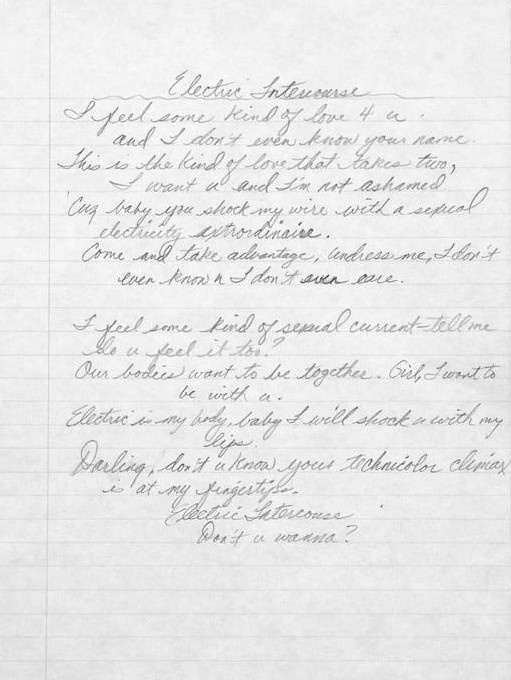 Electric Intercourse
I feel some kind of love 4 u.
and I don't even know your name.
This is the kind of love that takes two,
I want u and I'm not ashamed
'Cuz baby you shock my wire with a sexual
electricity extrordinaire.
Come and take advantage, undress me, I don't
even know u I don't even care.
I feel some kind of sexual current-tell me
do u feel it too?
Our bodies want to be together. Girl, I want to
be with u.
Electric is my body, baby I will shock u with my
lips.
Darling, don't u know your technicolor climax
is at my fingertips.
Electric Intercouse
Don't u wanna?